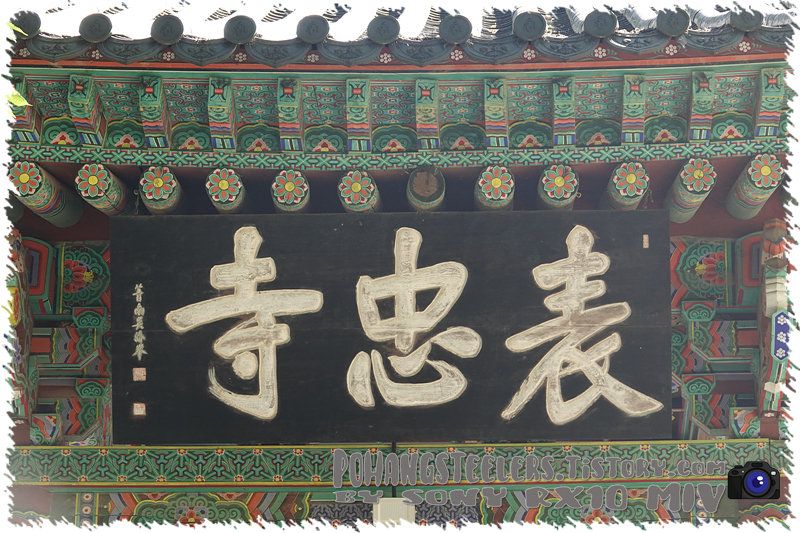 表忠寺
POHANGSTEELERS.TiSTORY.COM
BY SONY RX10 MIV